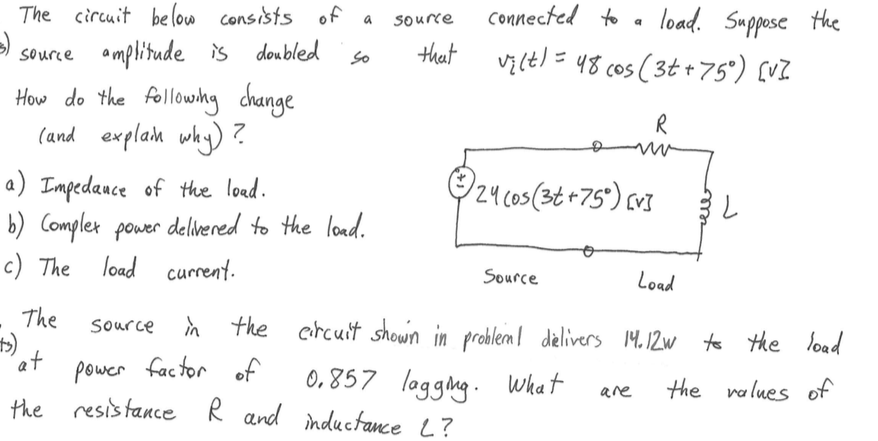 The circuit below consists of a source connected to a load. Suppose the
source amplitude is doubled so that vi(t) = 48 cos(3t + 75°) [V].
How do the following change
(and explain why)?
a) Impedance of the load.
b) Complex power delivered to the load.
c) The load current.
R
+
−
24 cos(3t + 75°) [V]
L
Source
Load
The source in the circuit shown in problem 1 delivers 14.12w to the load
ts)
at power factor of 0.857 lagging. What are the values of
the resistance R and inductance L?